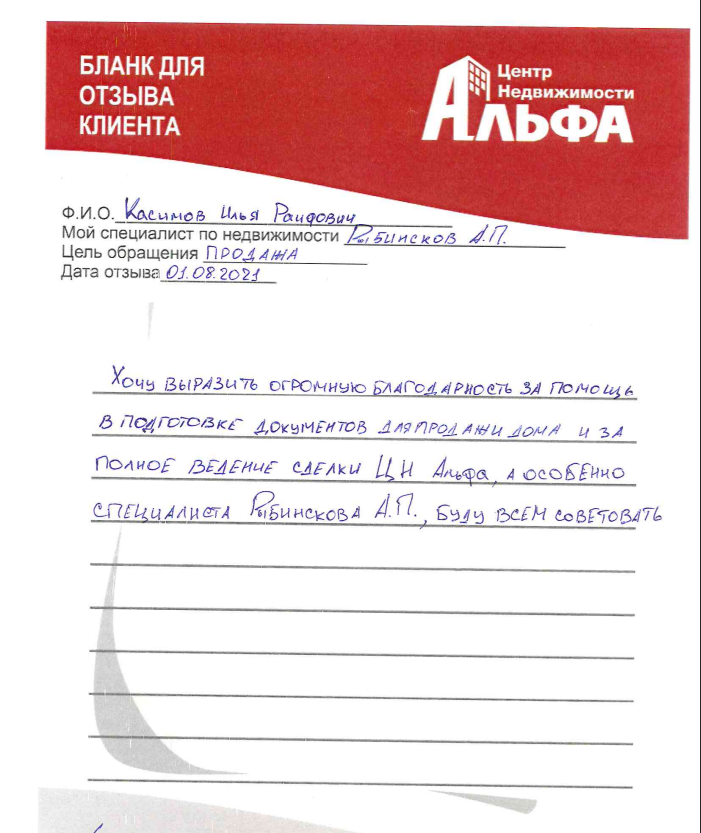 БЛАНК ДЛЯ
ОТЗЫВА
КЛИЕНТА
Центр
Недвижимости
АЛЬФА
Ф.И.О. Касимов Илья Раифович
Мой специалист по недвижимости Рыбинсков А.П.
Цель обращения ПРОДАЖА
Дата отзыва 01.08.2021
Хочу ВЫРАЗИТЬ ОГРОМНУЮ БЛАГОДАРНОСТЬ ЗА ПОМОЩЬ
В ПОДГОТОВКЕ ДОКУМЕНТОВ ДЛЯ ПРОДАЖИ ДОМА И ЗА
ПОЛНОЕ ВЕДЕНИЕ СДЕЛКИ ЦН Альфа, А ОСОБЕННО
СПЕЦИАЛИСТА РЫБИНСКОВА А.П., БУДУ ВСЕМ СОВЕТОВАТЬ